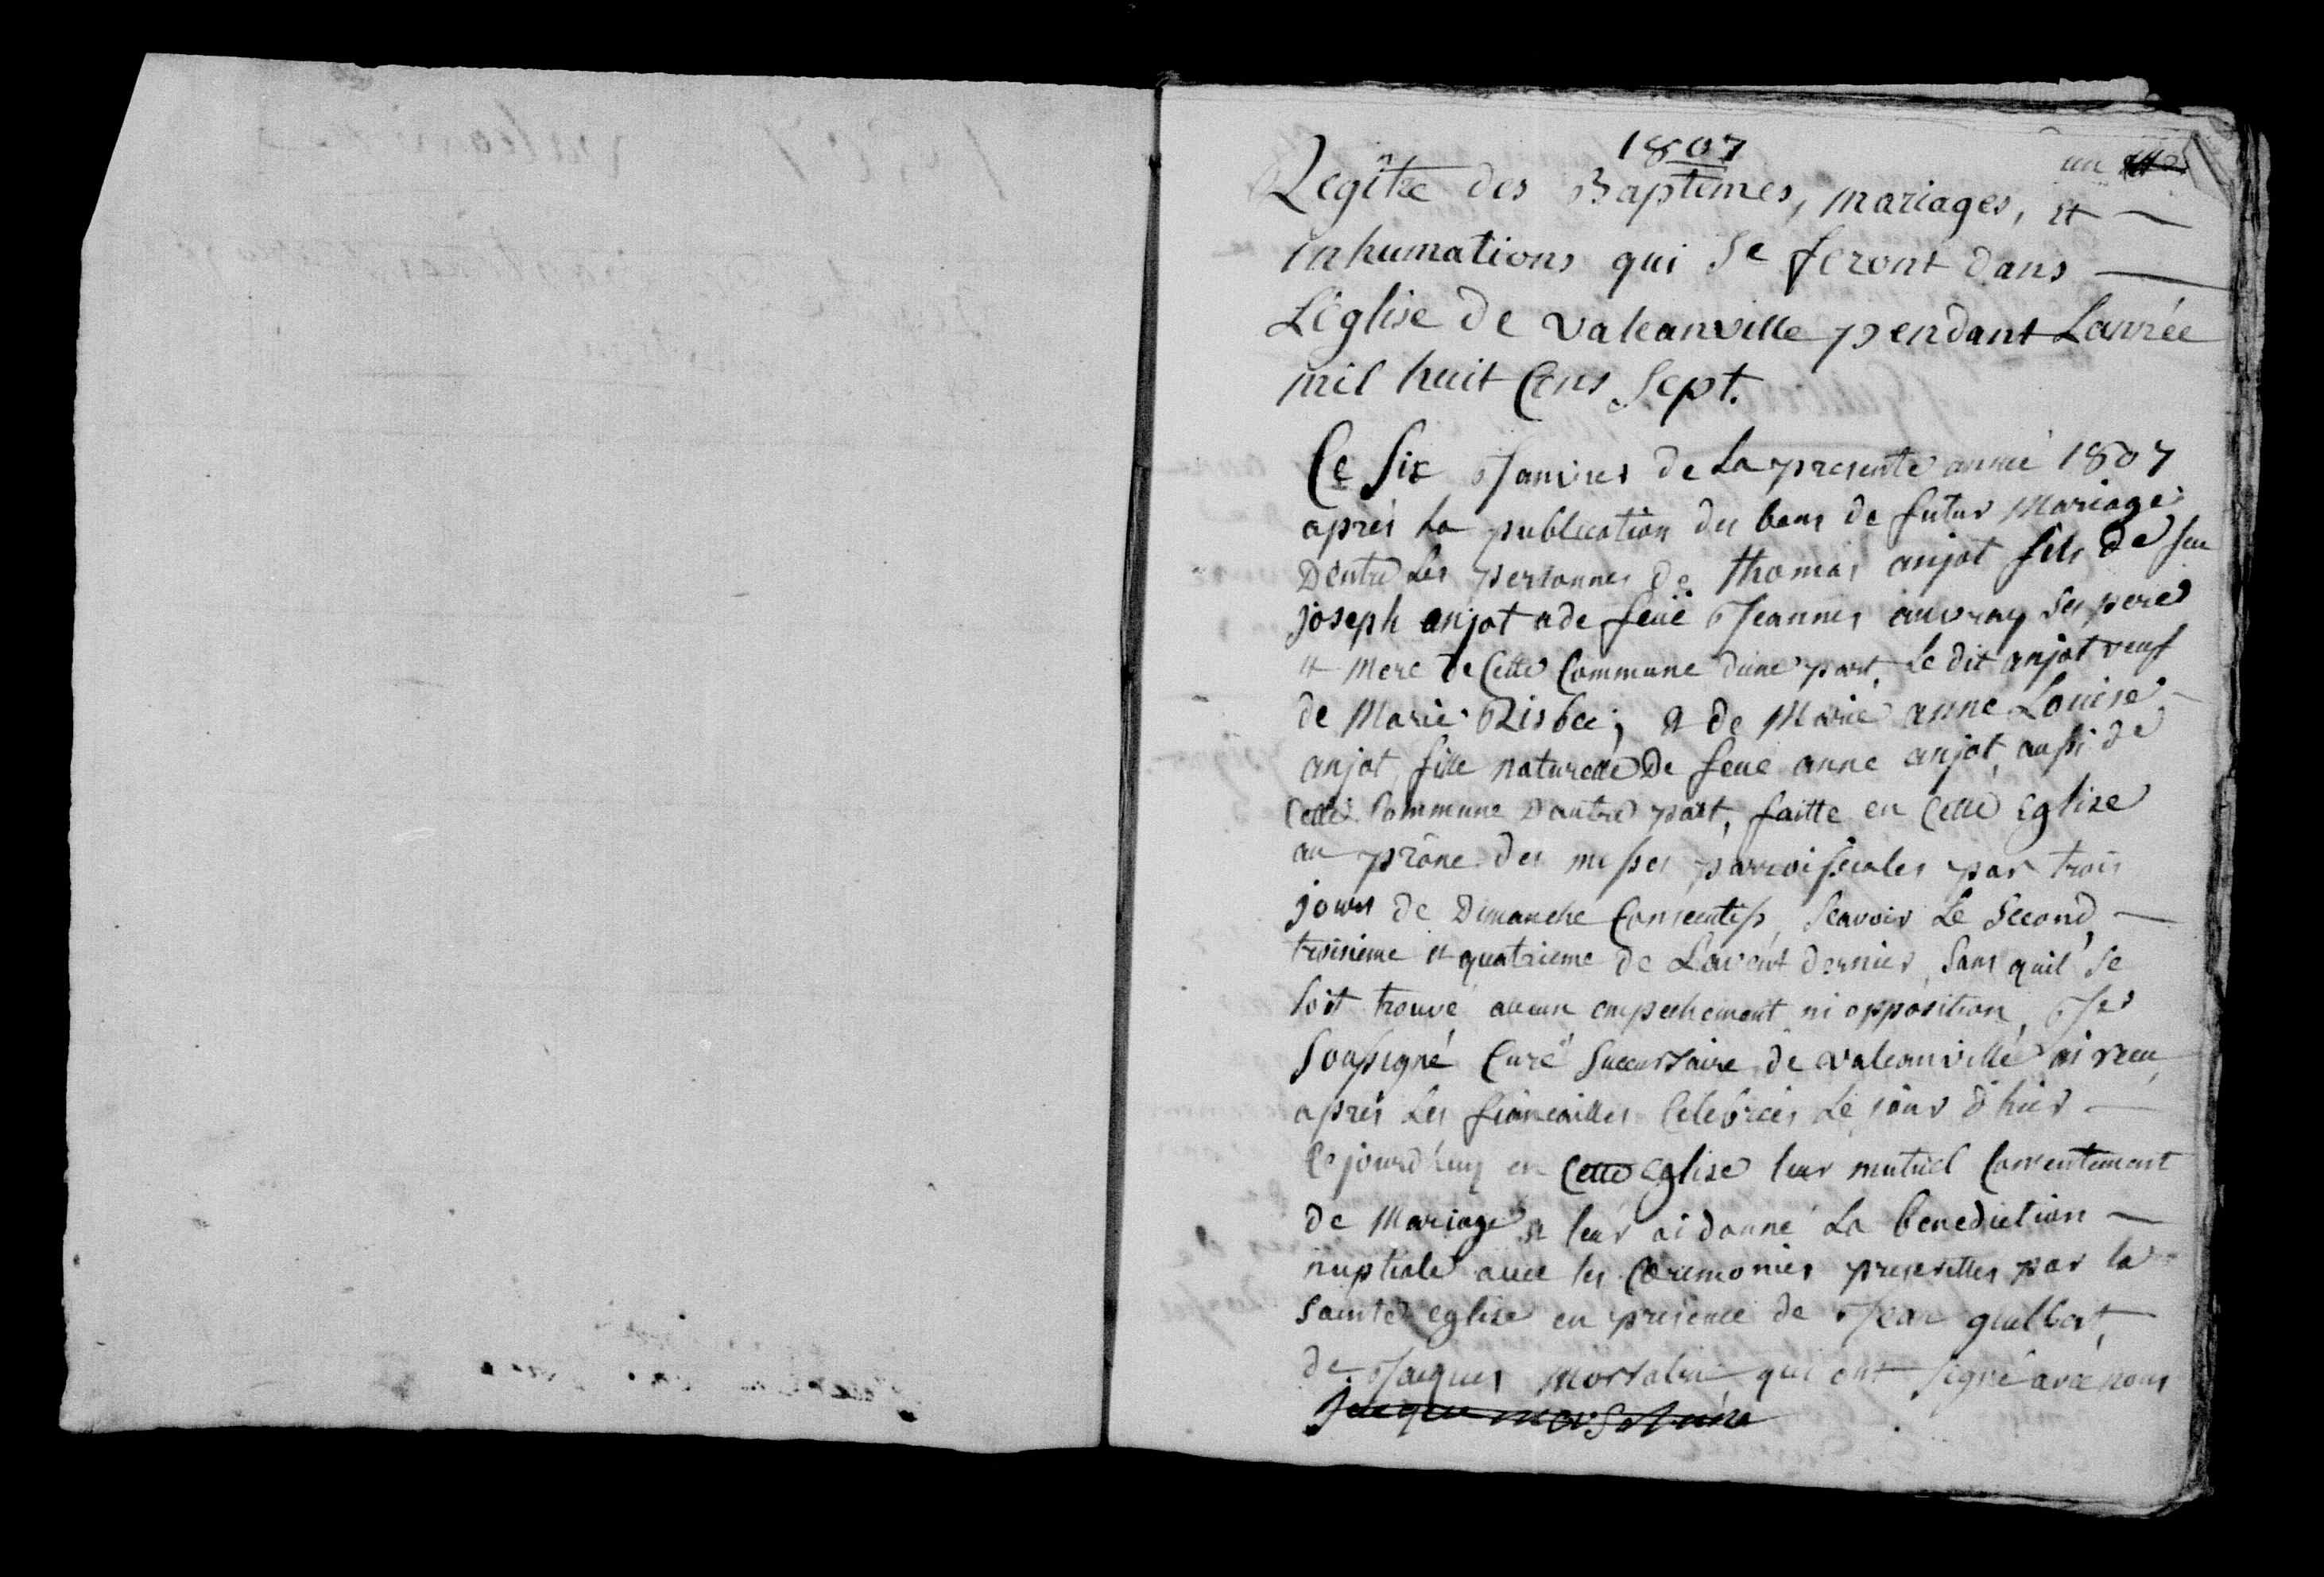 1807
un
Regître des Baptêmes, mariages, et
inhumations qui se feront dans
L'Eglise de valcanville pendant Lannée
mil huit Cens Sept.
Ce Six Janvier de La presente année 1807
après la publication des bans de futur Mariage
Dentre Les personnes de thomas anjot fils de feu
joseph anjot & de feüe Jeanne auvray ses pere
et mere de Cette Commune d'une part, Le dit anjot veuf
de Marie Risbec; & de Marie anne Louise
anjot, fille naturelle De feue anne anjot, aussi de
Cette Commune D'autre part, faitte en Cette Eglise
au prône des messes parroissiales par trois
jours de Dimanche Consecutifs, Scavoir Le Second,
troisieme et quatrieme de L'avent dernier, Sans quil se
soit trouvé aucun empechement ni opposition, Je
Soussigné Curé Succursaire de valcanville ai reçu
après Les fiançailles Celebrées Le jour d'hier
Cejourd'huy en Cette Eglise leur mutuel Consentement
de Mariage & leur ai donné La benediction
nuptiale avec les Ceremonies prescrittes par la
Sainte eglise en presence de Jean guelbert,
de Jacques Morsalin qui ont signé avec nous